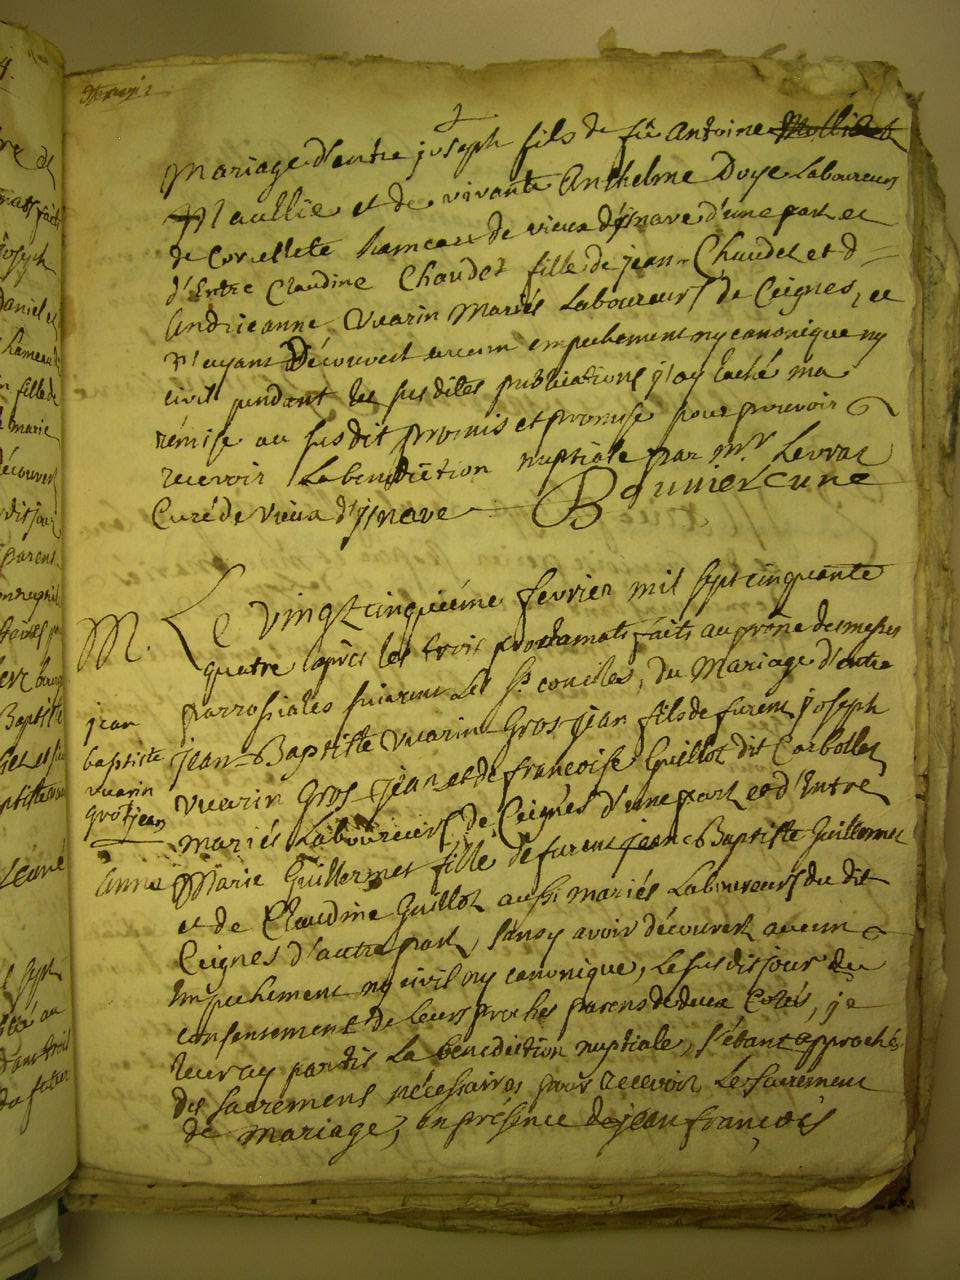 mariage d'entre joseph fils de fû antoine
Maullie et de vivante Anthelme Doye Laboureurs
de Corcellete hameaux de vieux d'jsnave d'une part et
d'Entre Claudine Chaudet fille de jean Chaudet et d
andrieanne Vuarin Mariés Laboureurs de Ceignes, et
n'ayant Découvert aucun empechement ny canonique ny
civil pendant les susdites publications j'ay laché ma
rémise au susdit promis et promise pour pouvoir
recevoir La benédiction nuptiale par mr. Levrat
Curé de vieux d'jsnave
Bouvier Curé
M.
Le vingt cinquiéme fevrier mil sept cinquante
quatre après les trois proclamats faits au prône des messes
parrossiales suivant Les St. conciles, du Mariage d'entre
jean
baptiste
vuarin
grosjean
jean-Baptiste vuarin Gros-jean fils de furent joseph
vuarin Gros-jean et de francoise Guillot dit Carbollet
mariés Laboureurs de Ceignes d'une part et d'Entre
anne Marie Guillermet fille de furent jean-Baptiste Guillermet
et de Claudine Guillot aussi mariés Laboureurs du dit
Ceignes d'autre part, sans y avoir découvert aucun
Empechement ny civil ny canonique, Le susdit jour du
consentement de leurs proches parens de deux Cotés, je
leur ay partis La benediction nuptiale, s'êtant approché
des sacremens nécessaires pour recevoir Le sacrement
de mariage, en présence de jean françois